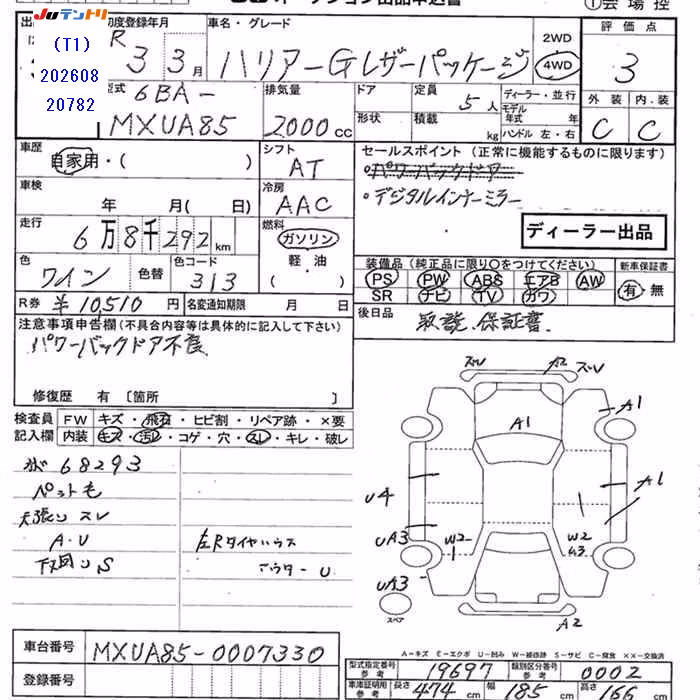 JUテントリ
(T1)
202608
20782
初度登録年月
R 3 3月
車名・グレード
ハリアー G レザーパッケージ
2WD
4WD
評価点
3
型式
6BA-
MXUA85
排気量
2000 cc
ドア
形状
定員
5人
積載
kg
ディーラー・並行
モデル
年式 年
ハンドル 左・右
外装 内装
C C
車歴
自家用・( )
シフト
AT
セールスポイント (正常に機能するものに限ります)
・パワーバックドア
・デジタルインナーミラー
車検
年 月( 日)
冷房
AAC
ディーラー出品
走行
6万8千292km
燃料
ガソリン
軽・油
( )
色
ワイン
色替
色コード
313
装備品 (純正品に限り○をつけてください)
PS PW ABS エアB AW
SR ナビ TV カワ
新車保証書
有・無
R券 ¥10,510円
名変通知期限 月 日
後日品
取説、保証書、
注意事項申告欄 (不具合内容等は具体的に記入して下さい)
パワーバックドア不良
修復歴 有 〔箇所 〕
検査員
記入欄
FW キズ・飛石・ヒビ割・リペア跡・×要
内装 キズ・汚レ・コゲ・穴・スレ・キレ・破レ
68293
ペット毛
天張りスレ
A・U
下回りS
左Rタイヤハウス
アウターU
ズレ A2 ズレ
A1
A1
A1
U4
UA3
W2
W2
U3
UA3
スペア
A2
A-キズ E-エクボ U-凹み W-補修跡 S-サビ C-腐食 ××-交換済
車台番号
MXUA85-0007330
登録番号
型式指定番号
参考
19697
類別区分番号
参考
0002
車庫証明用
参考
長さ 474 cm 幅 185 cm 高さ 166 cm